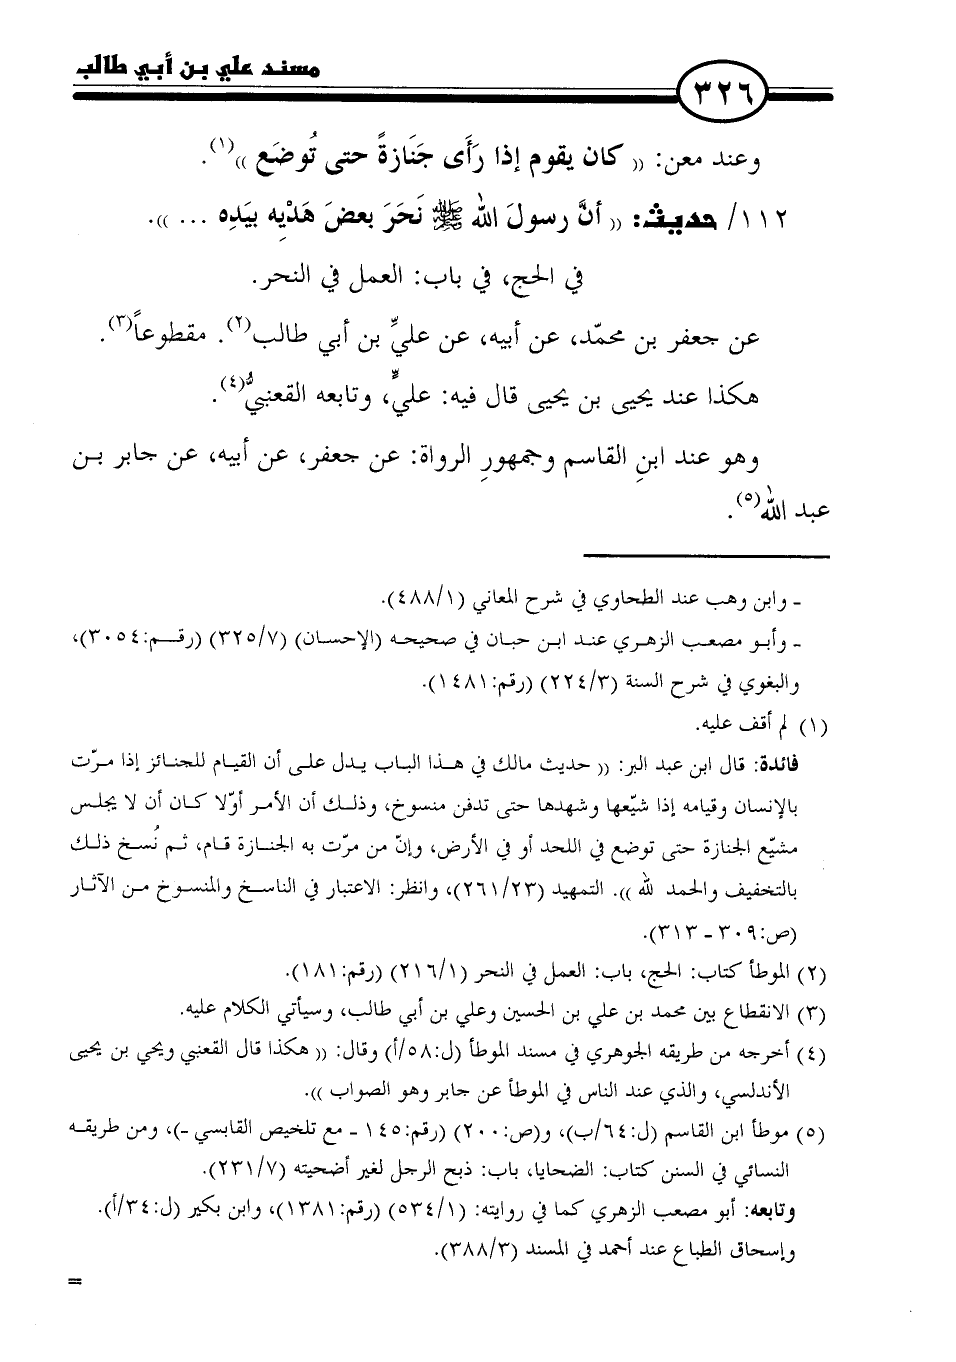 مسند علي بن أبي طالب
٣٢٦
وعند معن: (( كان يقوم إذا رَأَى جَنَازةً حتى تُوضَع ))(١).
١١٢/ حديث: (( أنَّ رسولَ الله ﷺ نَحَرَ بعضَ هَدْيِه بيَدِه ... )).
في الحج، في باب: العمل في النحر.
عن جعفر بن محمّد، عن أبيه، عن عليِّ بن أبي طالب(٢). مقطوعاً(٣).
هكذا عند يحيى بن يحيى قال فيه: عليٌّ، وتابعه القعنبيُّ(٤).
وهو عند ابنِ القاسم وجمهورِ الرواة: عن جعفر، عن أبيه، عن جابر بن
عبد الله(٥).
- وابن وهب عند الطحاوي في شرح المعاني (٤٨٨/١).
- وأبو مصعب الزهري عند ابن حبان في صحيحه (الإحسان) (٣٢٥/٧) (رقم:٣٠٥٤)،
والبغوي في شرح السنة (٢٢٤/٣) (رقم:١٤٨١).
(١) لم أقف عليه.
فائدة: قال ابن عبد البر: (( حديث مالك في هذا الباب يدل على أن القيام للجنائز إذا مرّت
بالإنسان وقيامه إذا شيّعها وشهدها حتى تدفن منسوخ، وذلك أن الأمر أوّلا كان أن لا يجلس
مشيّع الجنازة حتى توضع في اللحد أو في الأرض، وإنّ من مرّت به الجنازة قام، ثم نُسخ ذلك
بالتخفيف والحمد لله )). التمهيد (٢٦١/٢٣)، وانظر: الاعتبار في الناسخ والمنسوخ من الآثار
(ص:٣٠٩ - ٣١٣).
(٢) الموطأ كتاب: الحج، باب: العمل في النحر (٢١٦/١) (رقم:١٨١).
(٣) الانقطاع بين محمد بن علي بن الحسين وعلي بن أبي طالب، وسيأتي الكلام عليه.
(٤) أخرجه من طريقه الجوهري في مسند الموطأ (ل:٥٨/أ) وقال: (( هكذا قال القعنبي ويحي بن يحيى
الأندلسي، والذي عند الناس في الموطأ عن جابر وهو الصواب )).
(٥) موطأ ابن القاسم (ل:٦٤/ب)، و(ص:٢٠٠) (رقم:١٤٥ - مع تلخيص القابسي -)، ومن طريقه
النسائي في السنن كتاب: الضحايا، باب: ذبح الرجل لغير أضحيته (٢٣١/٧).
وتابعه: أبو مصعب الزهري كما في روايته: (٥٣٤/١) (رقم:١٣٨١)، وابن بكير (ل:٣٤/أ).
وإسحاق الطباع عند أحمد في المسند (٣٨٨/٣).
=